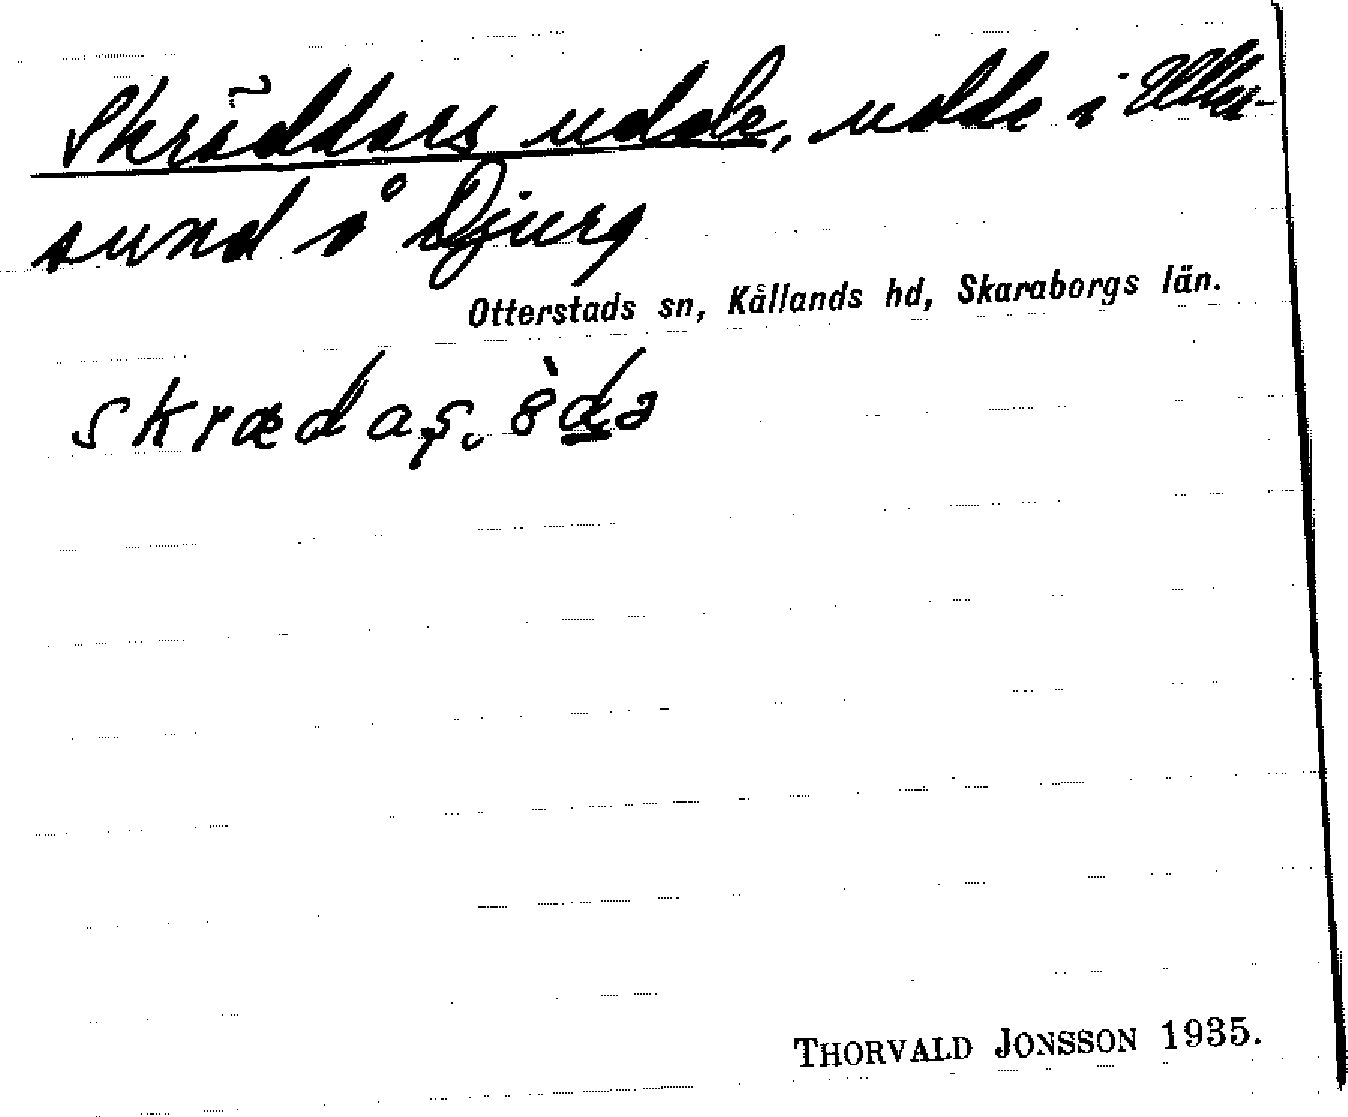 Skräddars udde, udde i Uller-
sund å Djurg
Otterstads sn, Kållands hd, Skaraborgs län.
skrædaş. ò̱da
THORVALD JONSSON 1935.